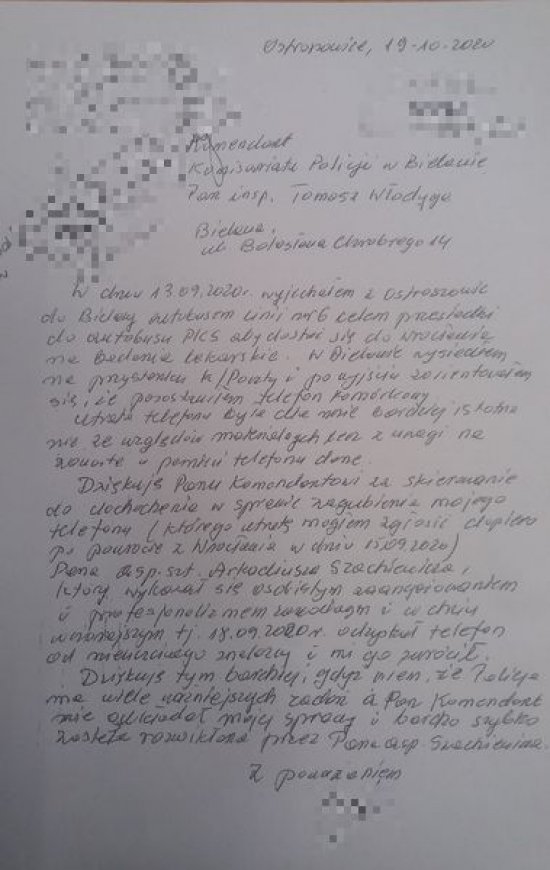 Ostroszowice, 19-10-2020
Komendant
Komisariatu Policji w Bielawie
Pan insp. Tomasz Włodyga
Bielawa,
ul. Bolesława Chrobrego 14
W dniu 13.09.2020r. wyjechałem z Ostroszowic
do Bielawy autobusem linii nr 6 celem przesiadki
do autobusu PKS aby dostać się do Wrocławia
na badania lekarskie. W Bielawie wysiadłem
na przystanku k/Poczty i po wyjściu zorientowałem
się, że pozostawiłem telefon komórkowy
Utrata telefonu była dla mnie bardziej istotna
nie ze względów materialnych lecz z uwagi na
zawarte w pamięci telefonu dane.
Dziękuję Panu Komendantowi za skierowanie
do dochodzenia w sprawie zagubienia mojego
telefonu (którego utratę mogłem zgłosić dopiero
po powrocie z Wrocławia w dniu 15.09.2020)
Pana asp. szt. Arkadiusza Szachiewicza,
który wykazał się osobistym zaangażowaniem
i profesjonalizmem zawodowym i w dniu
wczorajszym tj. 18.09.2020r. odzyskał telefon
od nieuczciwego znalazcy i mi go zwrócił.
Dziękuję tym bardziej, gdyż wiem, że Policja
ma wiele ważniejszych zadań a Pan Komendant
nie odkładał mojej sprawy i bardzo szybko
została rozwikłana przez Pana asp. Szachiewicza.
Z poważaniem